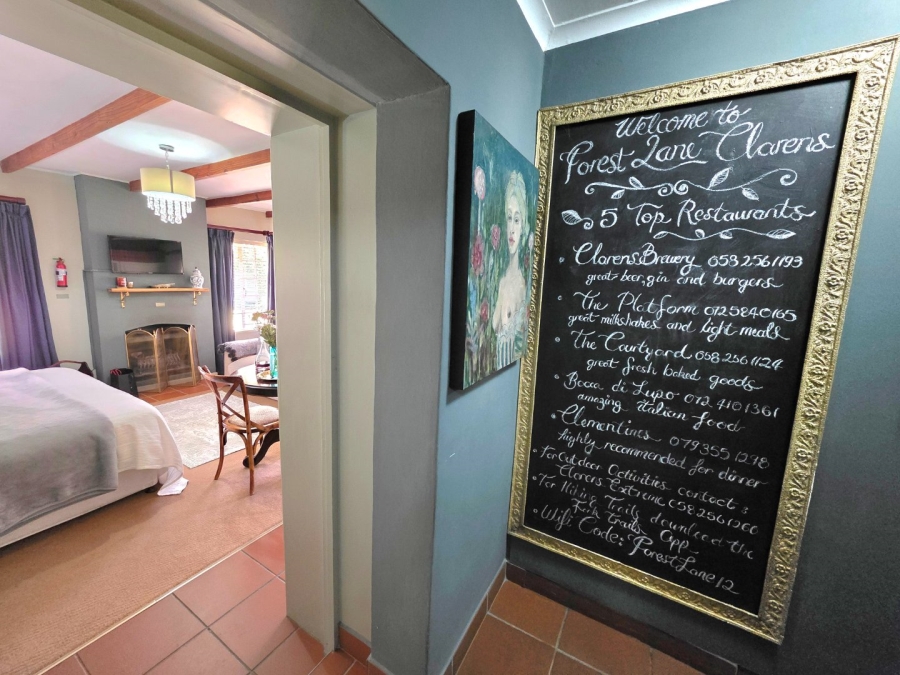 Welcome to
Forest Lane Clarens
5 Top Restaurants
Clarens Brewery 058 256 1193
great beer, gin and burgers
The Platform 0125840165
great milkshakes and light meals
The Courtyard 058 256 1124
great fresh baked goods
Bocca di Lupo 072 410 1361
amazing italian food
Clementines 079 355 1298
highly recommended for dinner
For Outdoor Activities contact:
Clarens Extreme 0582561260
For Hiking Trails download the
Trails App
Wifi Code: ForestLane12